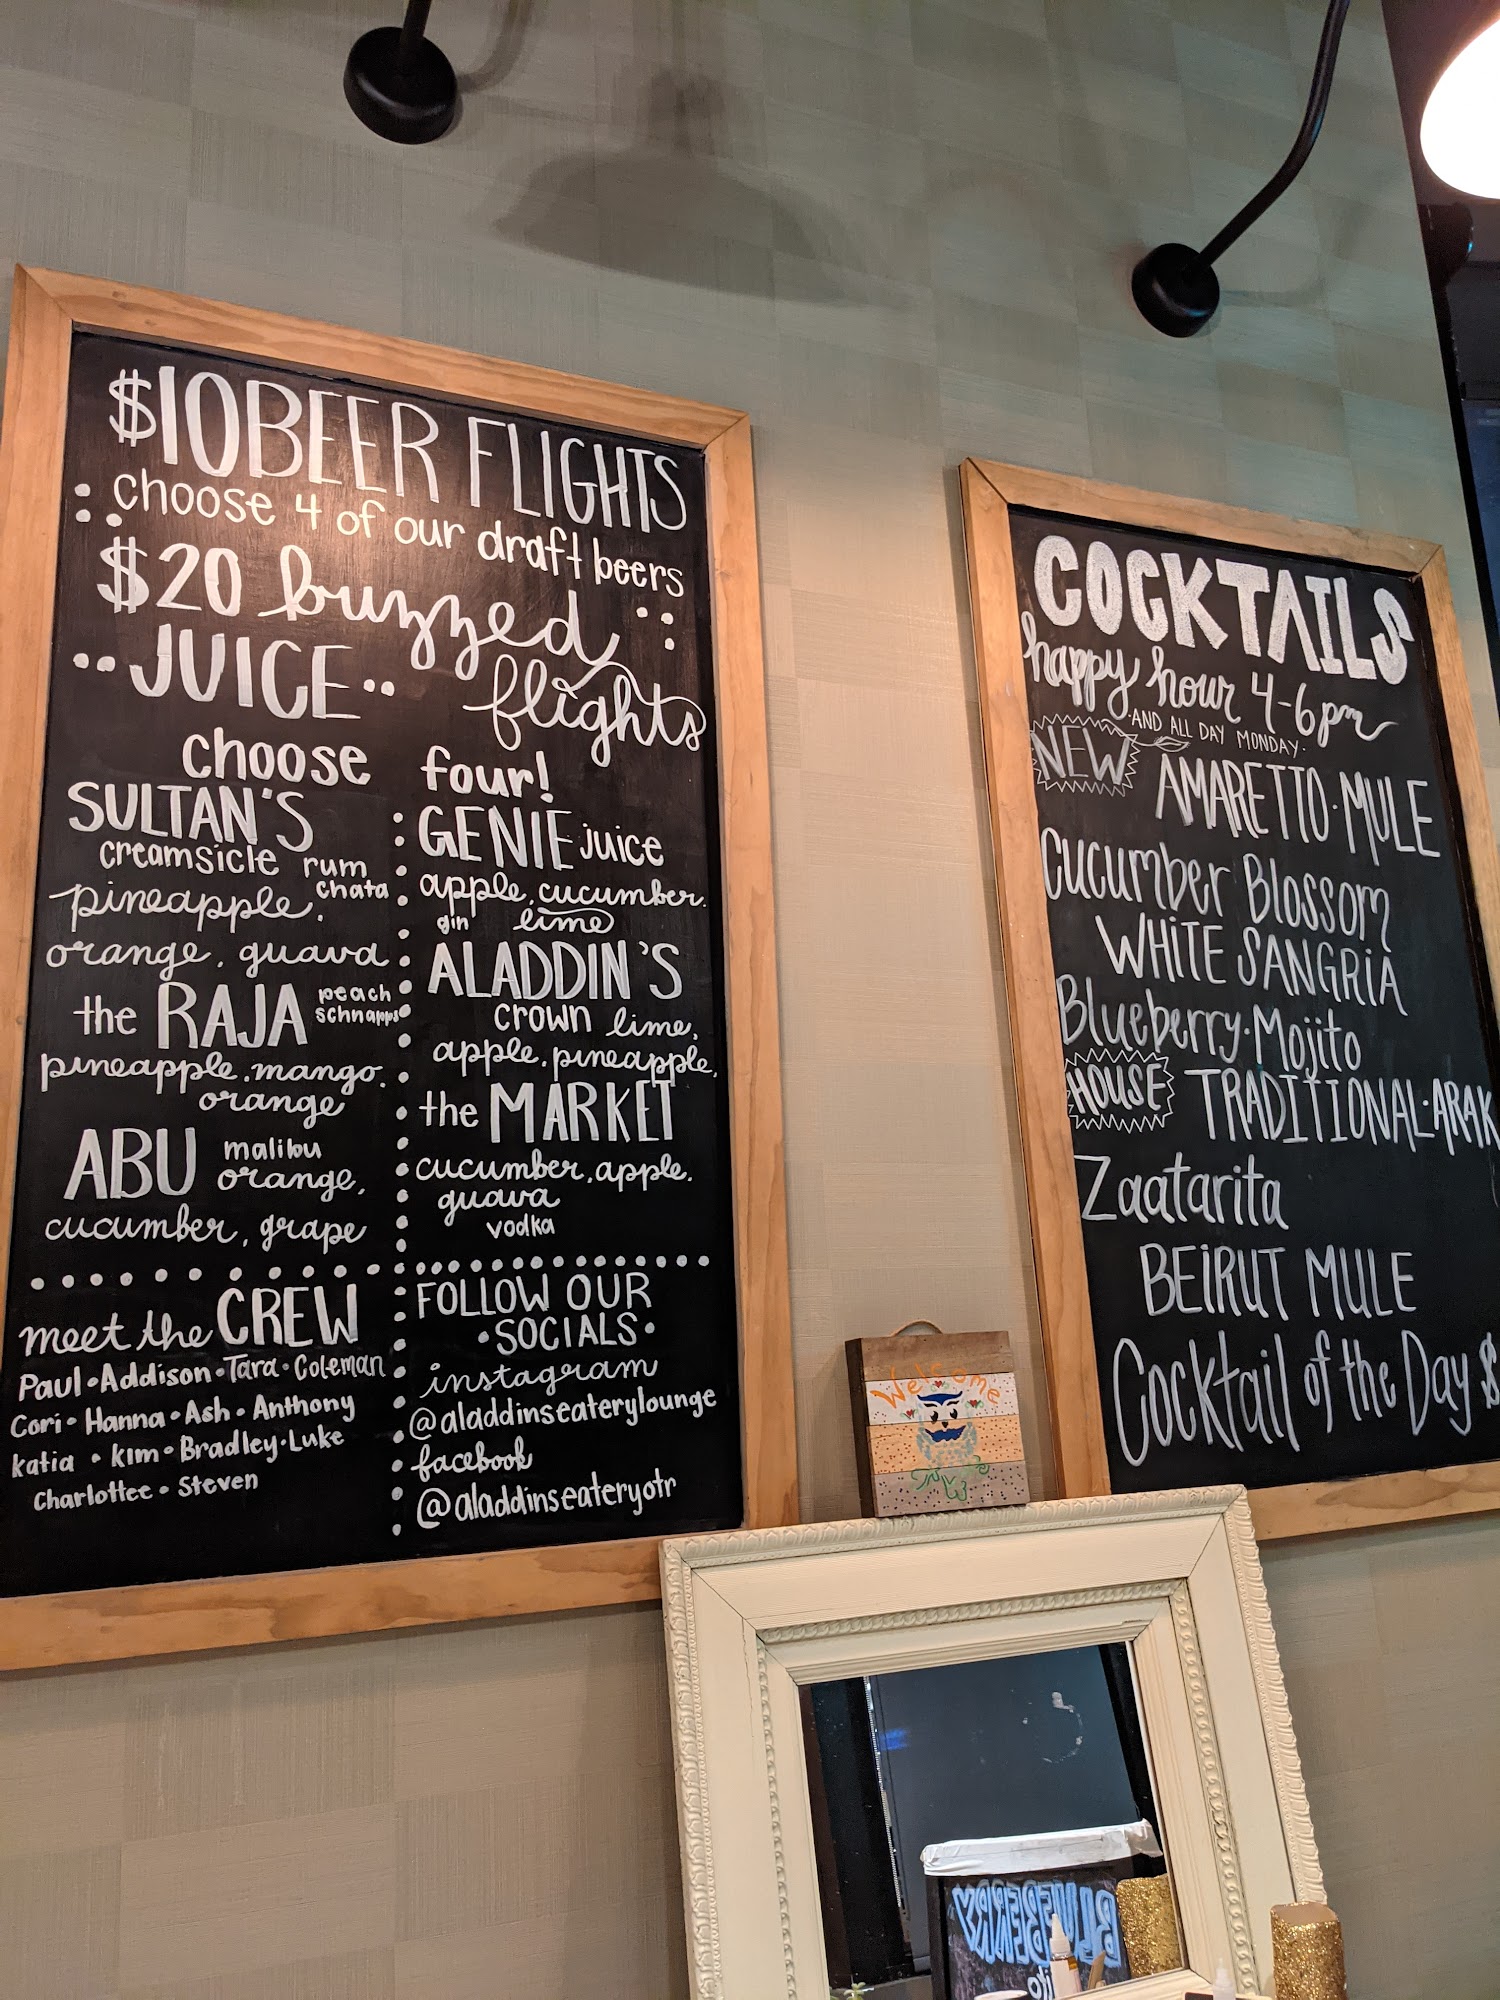 $10 BEER FLIGHTS
choose 4 of our draft beers
$20 buzzed
JUICE flights
choose four!
SULTAN'S
creamsicle rum
chata
pineapple,
orange, guava
the RAJA peach
schnapps
pineapple, mango,
orange
ABU malibu
orange,
cucumber, grape
GENIE juice
apple, cucumber,
gin lime
ALADDIN'S
crown lime,
apple, pineapple,
the MARKET
cucumber, apple,
guava
vodka
meet the CREW
Paul • Addison • Tara • Coleman
Cori • Hanna • Ash • Anthony
Katia • Kim • Bradley • Luke
Charlottee • Steven
FOLLOW OUR
• SOCIALS •
instagram
@aladdinseaterylounge
facebook
@aladdinseateryotr
COCKTAILS
happy hour 4-6pm
· AND ALL DAY MONDAY ·
NEW AMARETTO · MULE
Cucumber Blossom
WHITE SANGRIA
Blueberry · Mojito
HOUSE TRADITIONAL · ARAK
Zaatarita
BEIRUT MULE
Cocktail of the Day $
Welcome
BLUEBERRY